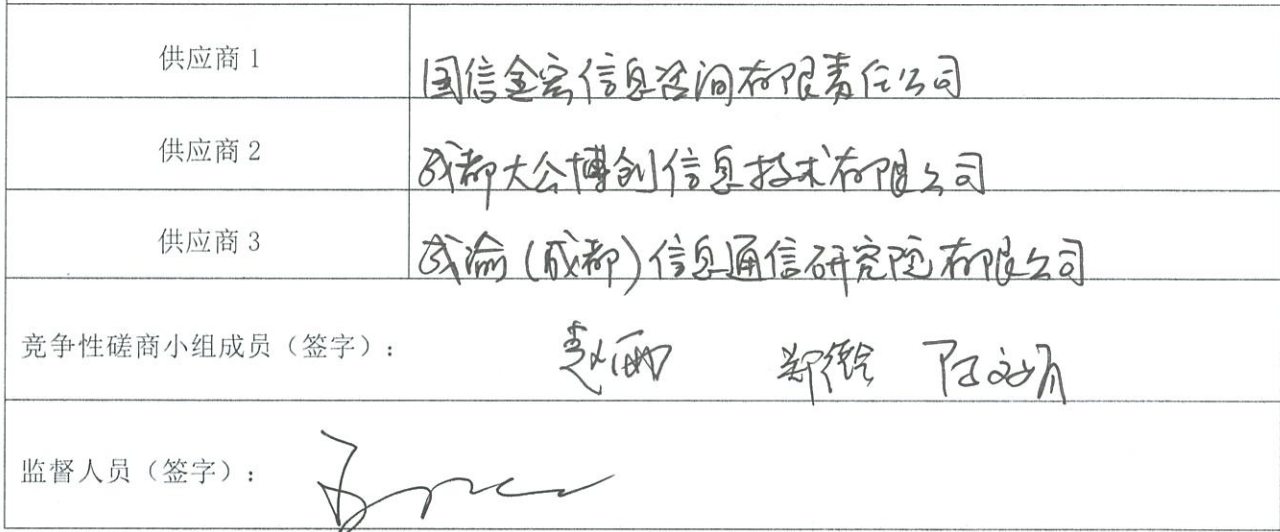 供应商 1 国信金宏信息咨询有限责任公司
供应商 2 成都大公博创信息技术有限公司
供应商 3 成渝（成都）信息通信研究院有限公司
竞争性磋商小组成员（签字）： 赵丽 郑 陈文娟
监督人员（签字）：